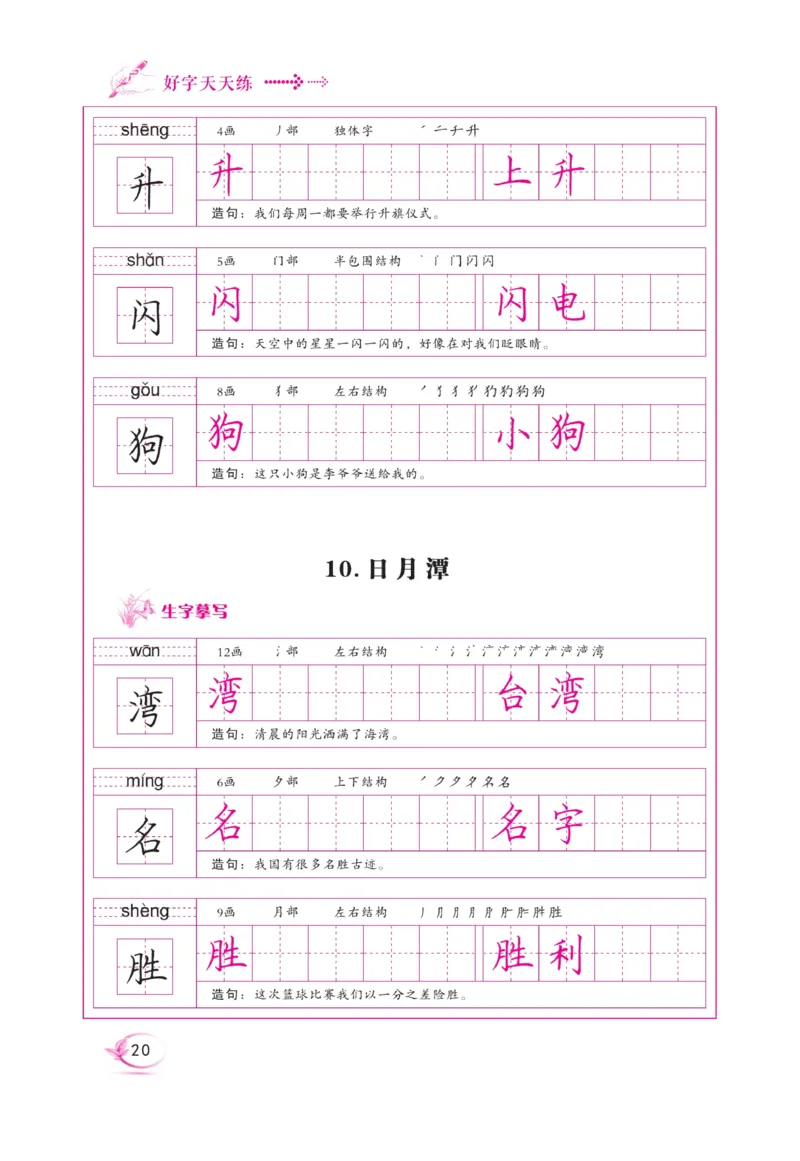 好字天天练
shēng 4画 丿部 独体字 ㇒ 二 千 升
升 升 上升
造句：我们每周一都要举行升旗仪式。
shǎn 5画 门部 半包围结构 丶 丨 门 闪 闪
闪 闪 闪电
造句：天空中的星星一闪一闪的，好像在对我们眨眼睛。
gǒu 8画 犭部 左右结构
狗 狗 小狗
造句：这只小狗是李爷爷送给我的。
10.日月潭
生字摹写
wān 12画 氵部 左右结构
湾 湾 台湾
造句：清晨的阳光洒满了海湾。
míng 6画 夕部 上下结构
名 名 名字
造句：我国有很多名胜古迹。
shèng 9画 月部 左右结构
胜 胜 胜利
造句：这次篮球比赛我们以一分之差险胜。
20